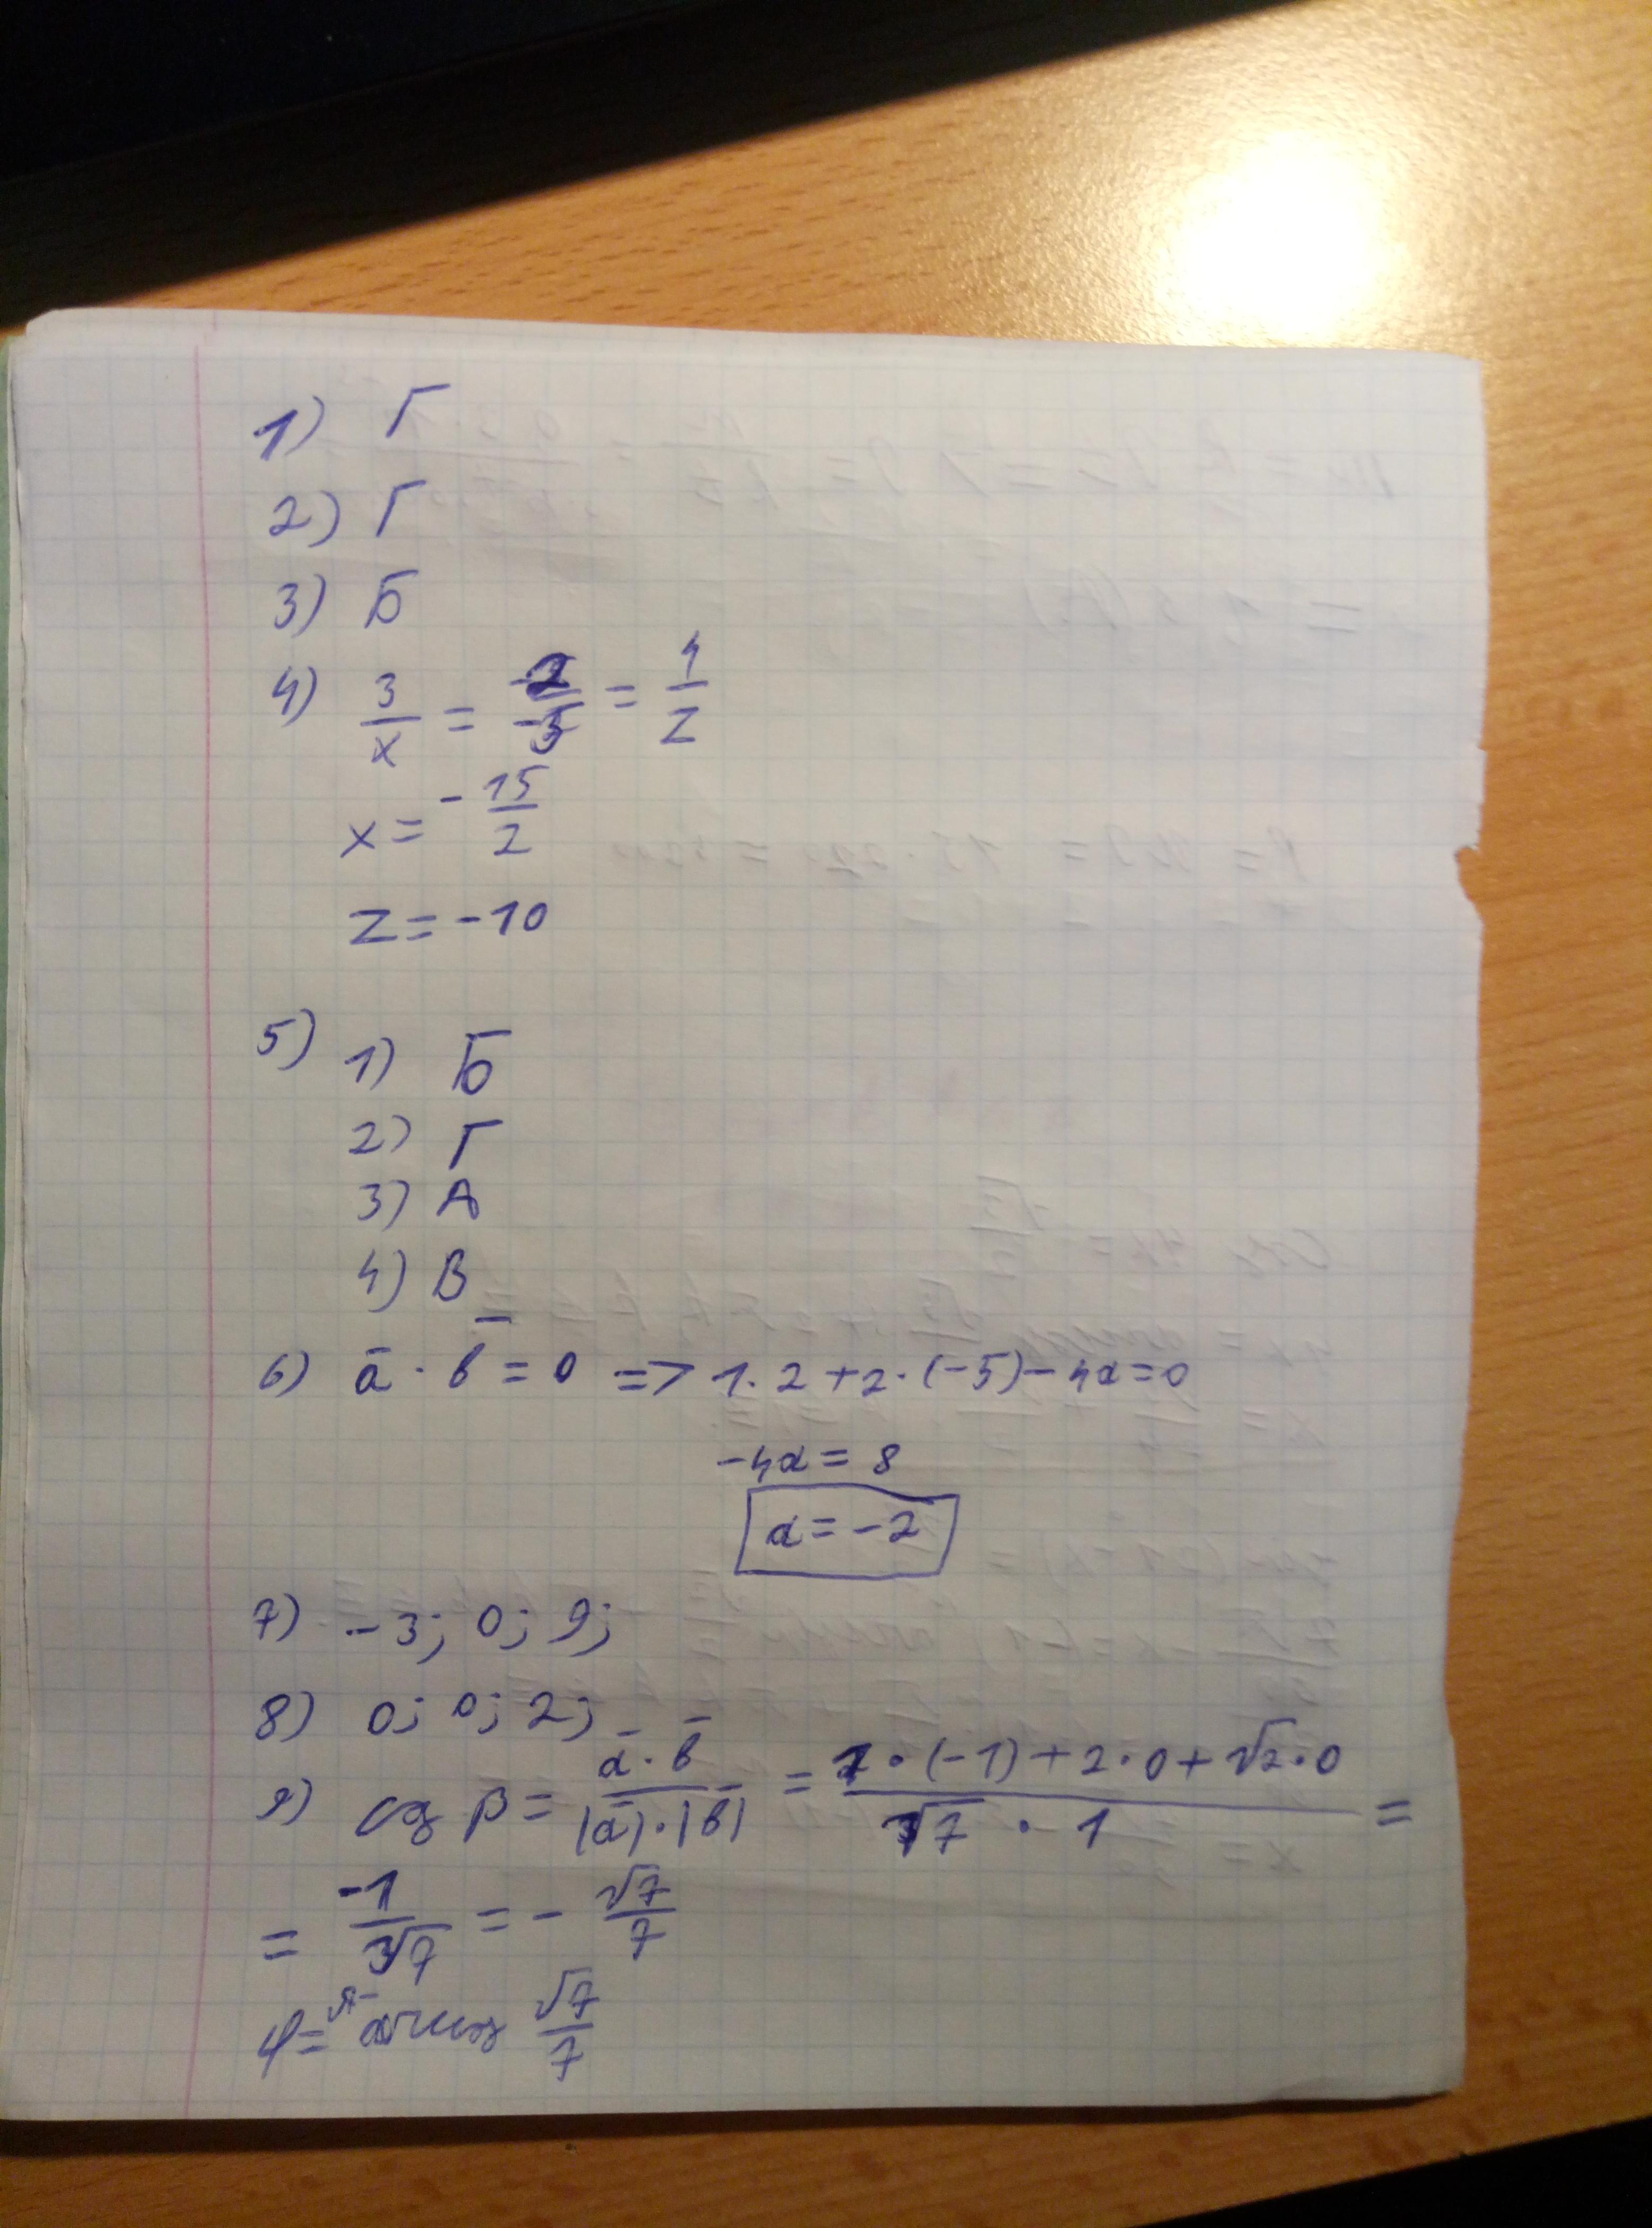 1) Г
2) Г
3) Б
4) 3/x = -2/5 = 4/z
x = -15/2
z = -10
5) 1) Б
2) Г
3) А
4) В
6) ā · b̄ = 0 => 1·2+2·(-5)-4α=0
-4α = 8
α = -2
7) -3; 0; 9;
8) 0; 0; 2;
9) cos β = ā·b̄/|ā|·|b̄| = 1·(-1)+2·0+√2·0/√7 · 1 =
= -1/√7 = - √7/7
φ = π- arccos √7/7